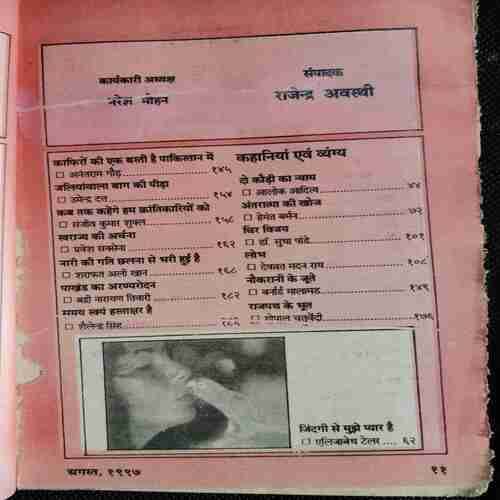 कार्यकारी अध्यक्ष
नरेश मोहन
संपादक
राजेन्द्र अवस्थी
काफिरों की एक बस्ती है पाकिस्तान में
□ अनंतराम गौड़ .................. १४५
जलियांवाला बाग की पीड़ा
□ उमेन्द्र दत्त .................. १५४
कब तक कहेंगे हम क्रांतिकारियों को
□ संजीव कुमार शुक्ल .................. १५८
स्वराज्य की अर्चना
□ प्रवेश सक्सेना .................. १६२
नारी की गति छलना से भरी हुई है
□ शराफत अली खान .................. १६८
पाखंड का अरण्यरोदन
□ बद्री नारायण तिवारी .................. १८२
समय स्वयं हस्ताक्षर है
□ शैलेन्द्र सिंह ..................
कहानियां एवं व्यंग्य
दो कौड़ी का न्याय
□ आलोक आदित्य .................. ४४
अंतरात्मा की खोज
□ हेमंत बर्मन .................. ७२
चिर विजय
□ डॉ. सुधा पांडे .................. १०१
लोभ
□ देवव्रत मदन राय .................. १०८
नौकरानी के जूते
□ बर्नार्ड मालामड .................. १४९
राजपथ के भूत
□ गोपाल चतुर्वेदी .................. १७६
जिंदगी से मुझे प्यार है
□ एलिजाबेथ टेलर .... ६२
अगस्त, १९९७
११